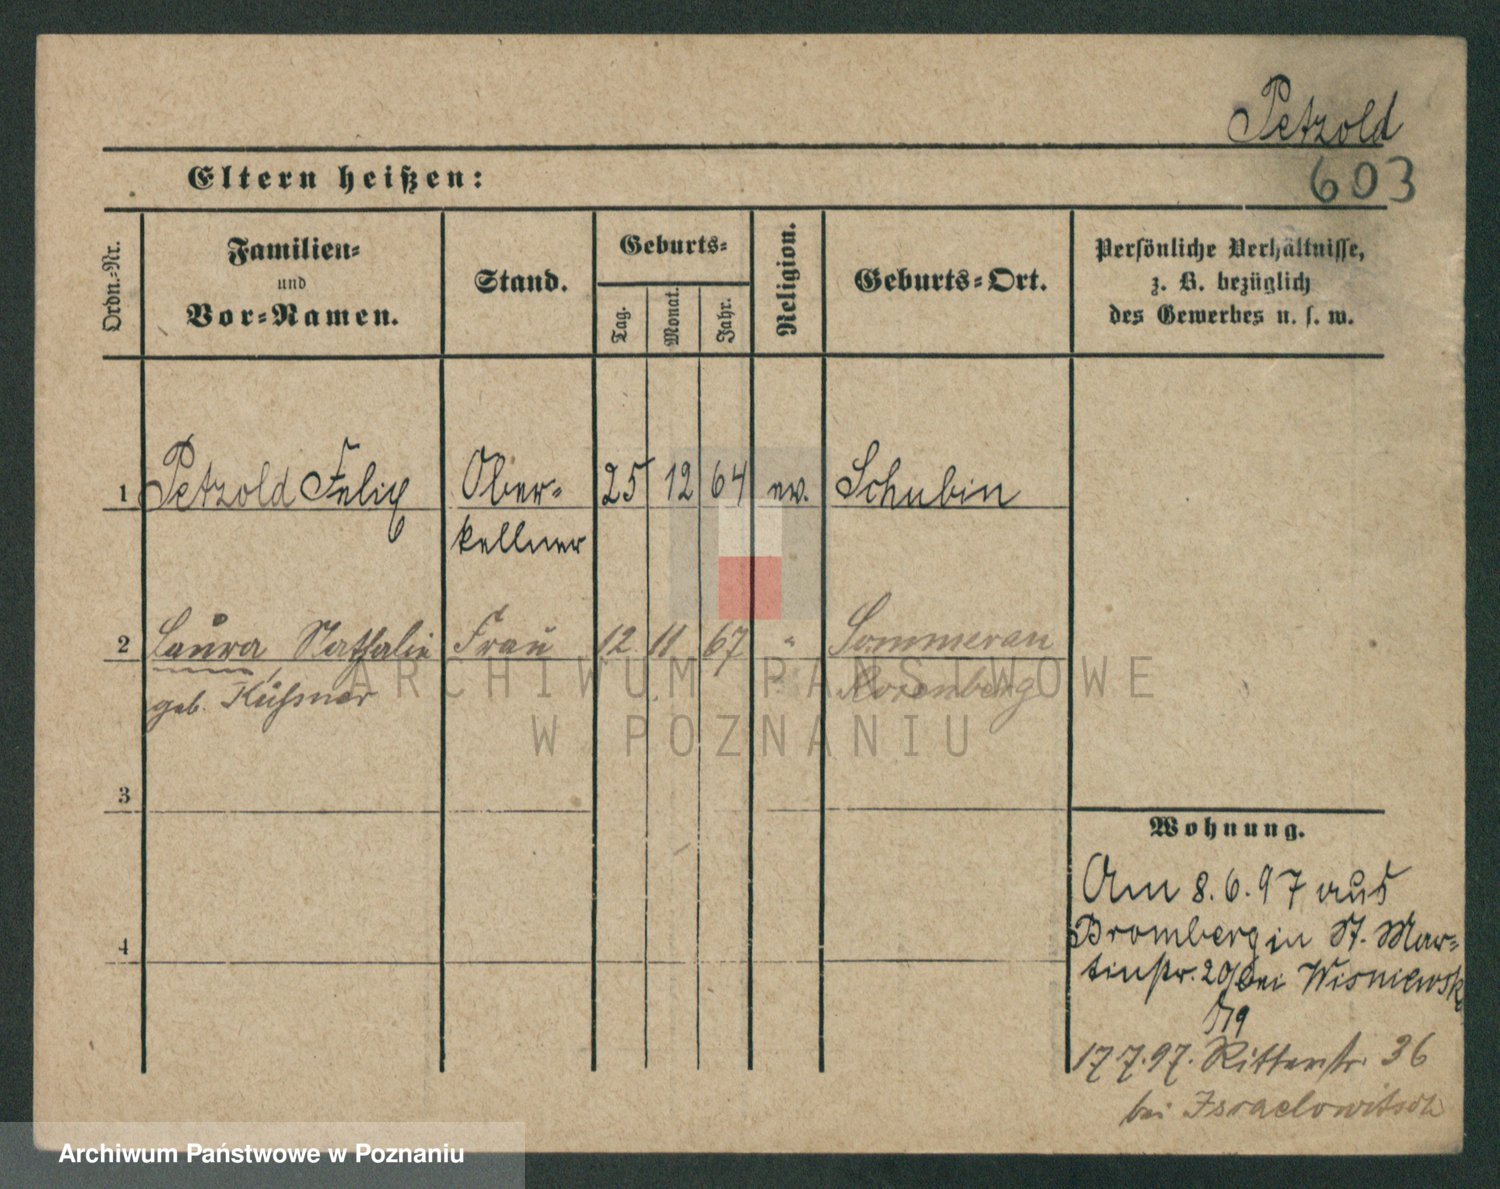 Petzold
603
Eltern heißen:
Ordn.-Nr.
Familien-
und
Vor-Namen.
Stand.
Geburts-
Tag.
Monat.
Jahr.
Religion.
Geburts-Ort.
Persönliche Verhältnisse,
z. B. bezüglich
des Gewerbes u. s. w.
1 Petzold Felix Ober- 25 12 64 ev. Schubin
kellner
2 Laura Nathalie Frau 12 11 67 " Sommerau
geb. Küßner Rosenberg
3
4
Wohnung.
Am 8.6.97 aus
Bromberg in St. Mar-
tinstr. 29 bei Wisniewsk
17 7.97. Ritterstr. 36
bei Israelowitsch
ARCHIWUM PAŃSTWOWE
W POZNANIU
Archiwum Państwowe w Poznaniu